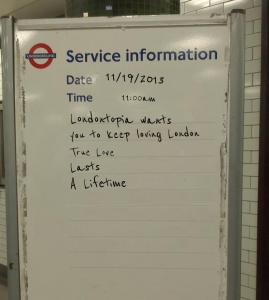 UNDERGROUND
Service information
Date 11/19/2013
Time 11:00am
Londontopia wants
you to keep loving London
True Love
Lasts
A Lifetime